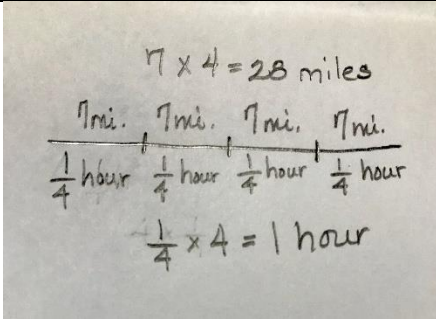 7 x 4 = 28 miles
7mi. 7mi. 7mi. 7mi.
1/4 hour 1/4 hour 1/4 hour 1/4 hour
1/4 x 4 = 1 hour